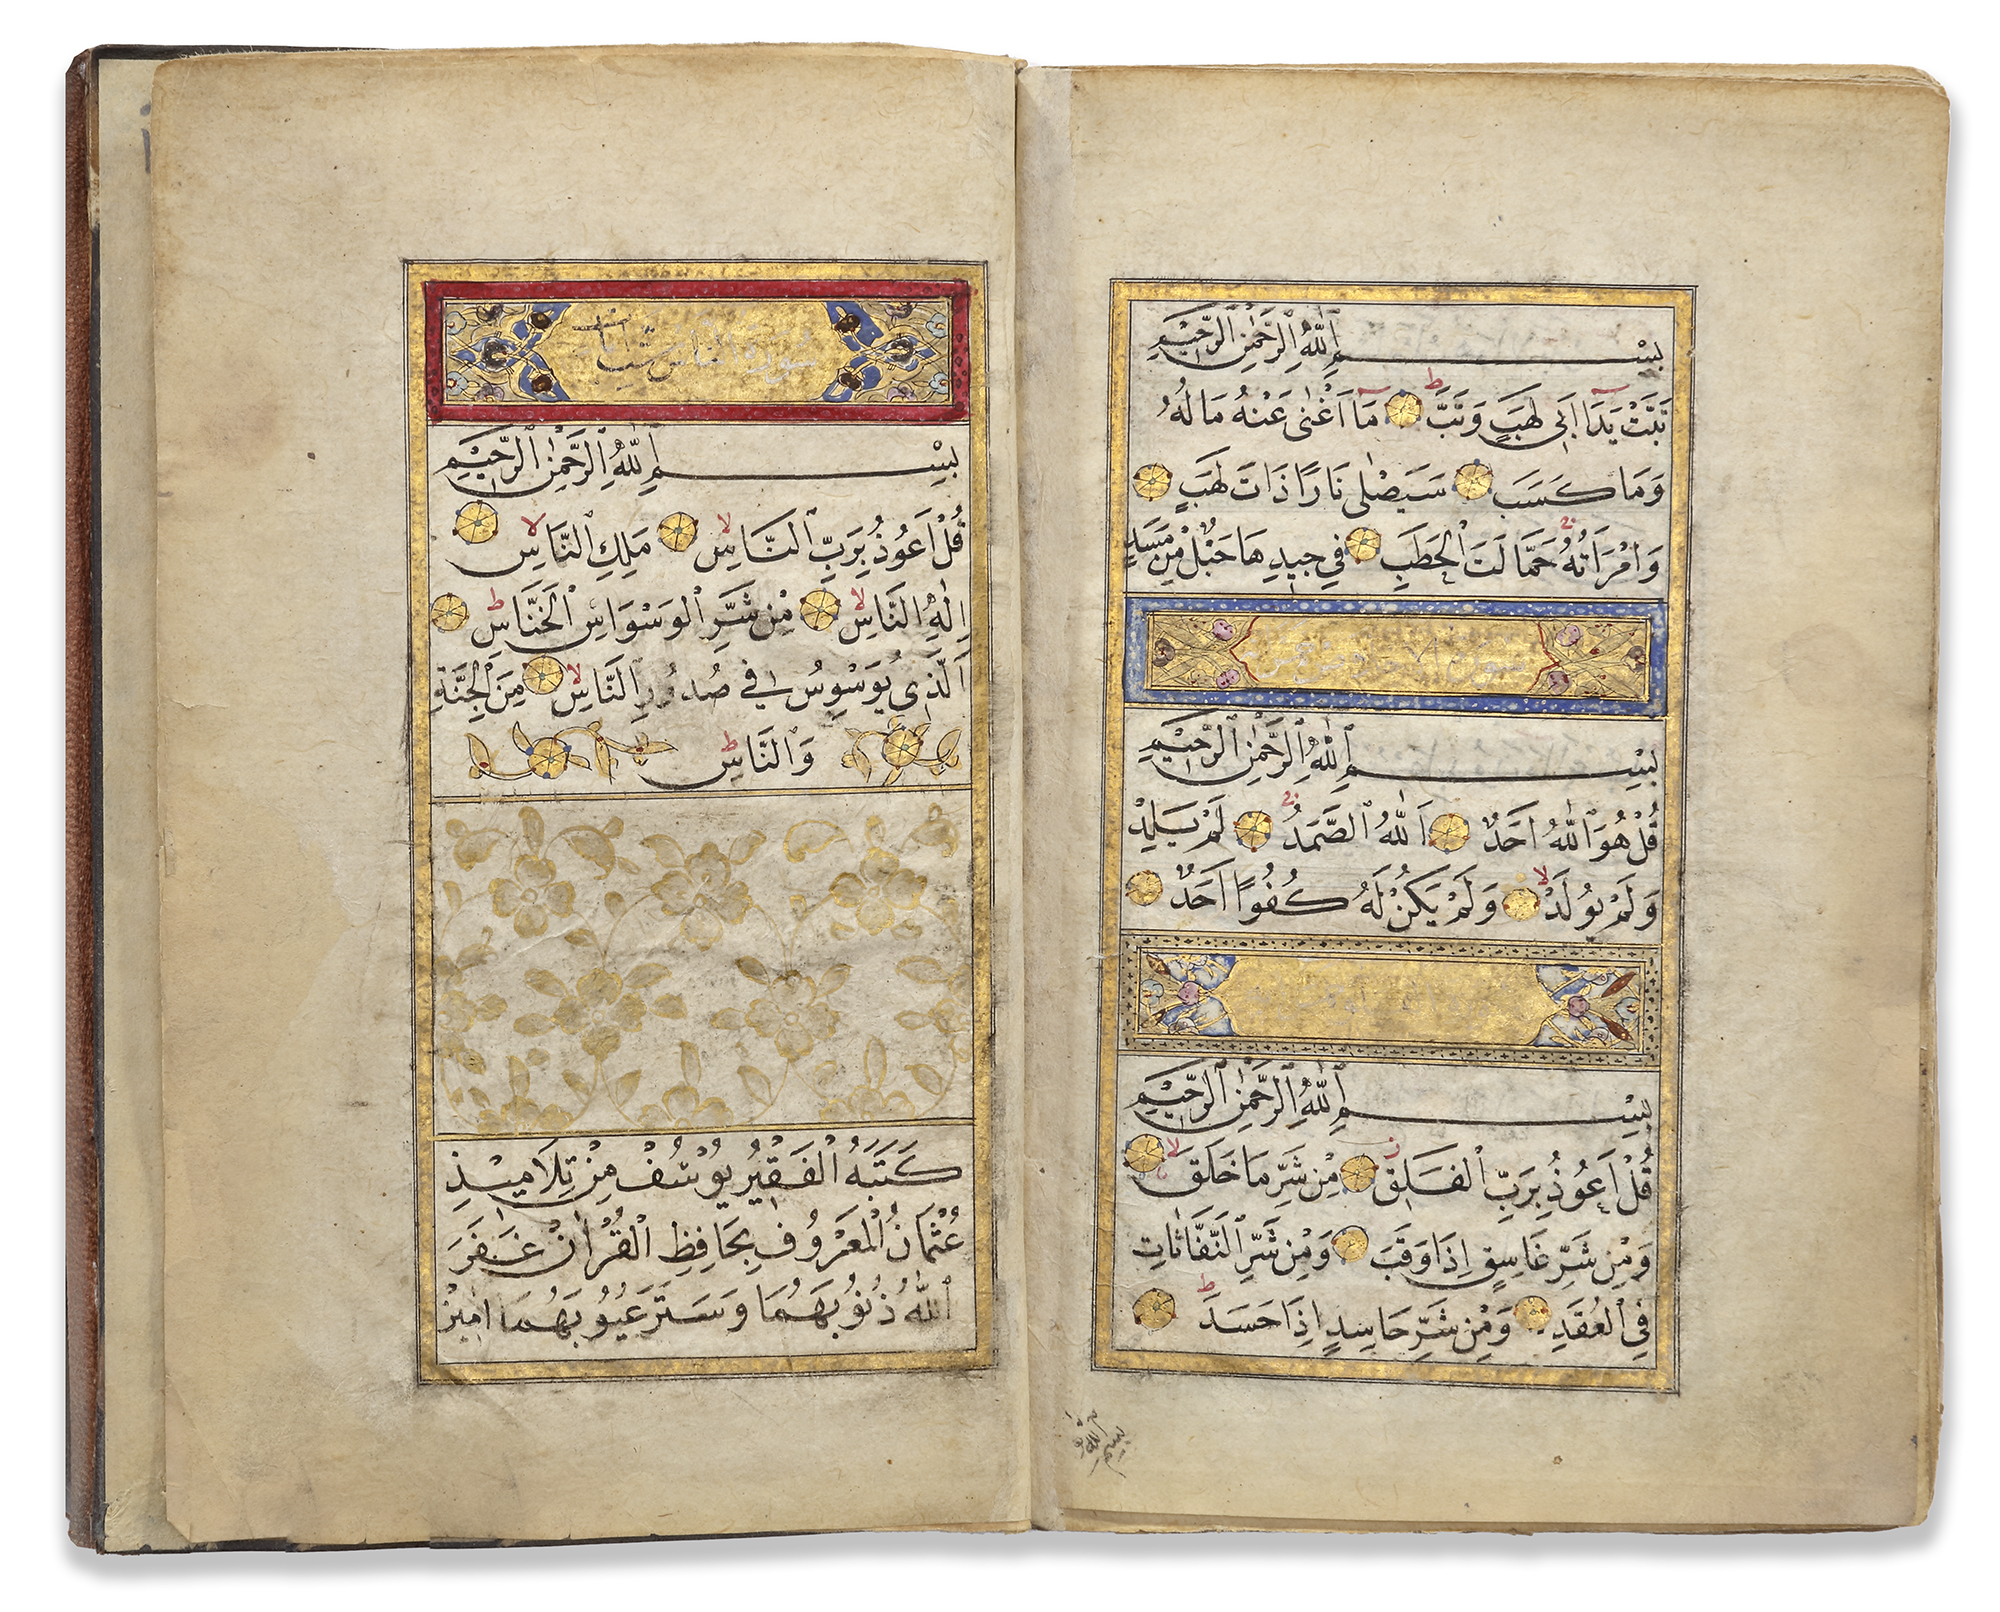 بِسْمِ اللّٰهِ الرَّحْمٰنِ الرَّحِيْمِ
تَبَّتْ يَدَا اَبِى لَهَبٍ وَتَبَّ ط مَا اَغْنٰى عَنْهُ مَالُهُ
وَمَا كَسَبَ سَيَصْلٰى نَارًا ذَاتَ لَهَبٍ
وَامْرَاَتُهُ حَمَّالَتَ الْحَطَبِ فِى جِيدِهَا حَبْلٌ مِنْ مَسَدٍ
بِسْمِ اللّٰهِ الرَّحْمٰنِ الرَّحِيْمِ
قُلْ هُوَ اللّٰهُ اَحَدٌ اَللّٰهُ الصَّمَدُ لَمْ يَلِدْ
وَلَمْ يُولَدْ لا وَلَمْ يَكُنْ لَهُ كُفُوًا اَحَدٌ
بِسْمِ اللّٰهِ الرَّحْمٰنِ الرَّحِيْمِ
قُلْ اَعُوذُ بِرَبِّ الْفَلَقِ مِنْ شَرِّ مَا خَلَقَ لا
وَمِنْ شَرِّ غَاسِقٍ اِذَا وَقَبَ وَمِنْ شَرِّ النَّفَّاثَاتِ
فِى الْعُقَدِ وَمِنْ شَرِّ حَاسِدٍ اِذَا حَسَدَ ط
سورة الناس ست ايات
بِسْمِ اللّٰهِ الرَّحْمٰنِ الرَّحِيْمِ
قُلْ اَعُوذُ بِرَبِّ النَّاسِ لا مَلِكِ النَّاسِ لا
اِلٰهِ النَّاسِ لا مِنْ شَرِّ الْوَسْوَاسِ الْخَنَّاسِ ط
اَلَّذِى يُوَسْوِسُ فِى صُدُورِ النَّاسِ لا مِنَ الْجِنَّةِ
وَالنَّاسِ ط
كَتَبَهُ الْفَقِيْرُ يُوسُفْ مِنْ تِلَامِيذِ
عُثْمَانُ الْمَعْرُوفِ بِحَافِظِ الْقُرْاٰنْ غَفَرَ
اللّٰهُ ذُنُوبَهُمَا وَسَتَرَ عُيُوبَهُمَا اٰمِيْنْ